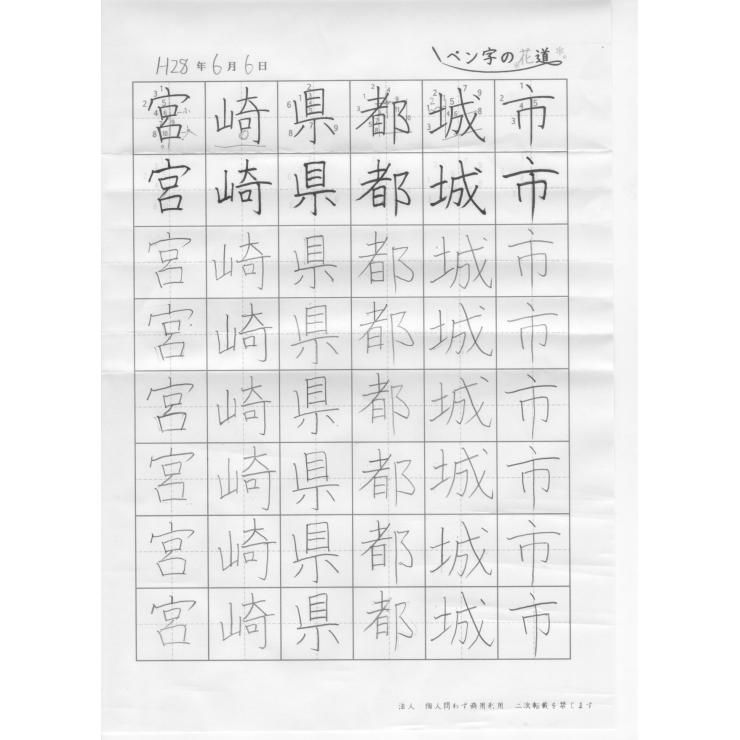 H28年6月6日
ペン字の花道
宮崎県都城市
宮崎県都城市
宮崎県都城市
宮崎県都城市
宮崎県都城市
宮崎県都城市
宮崎県都城市
宮崎県都城市
法人 個人問わず商用利用 二次転載を禁じます